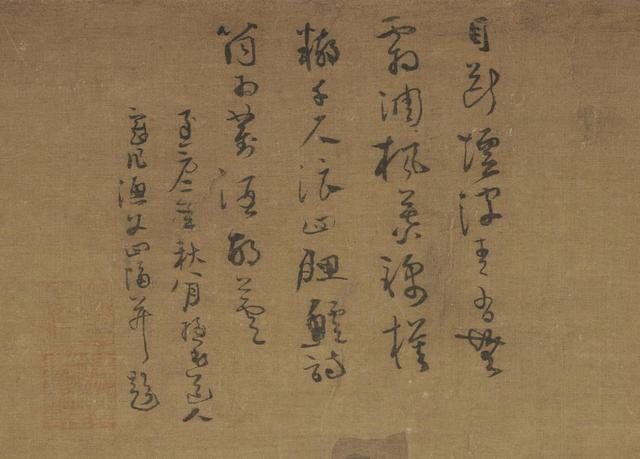 目斷煙波青有無
霜凋楓葉錦模
糊千尺浪四腮鱸詩
筒相對酒葫蘆
至元二年秋八月梅花道人
戲作漁父四幅并題